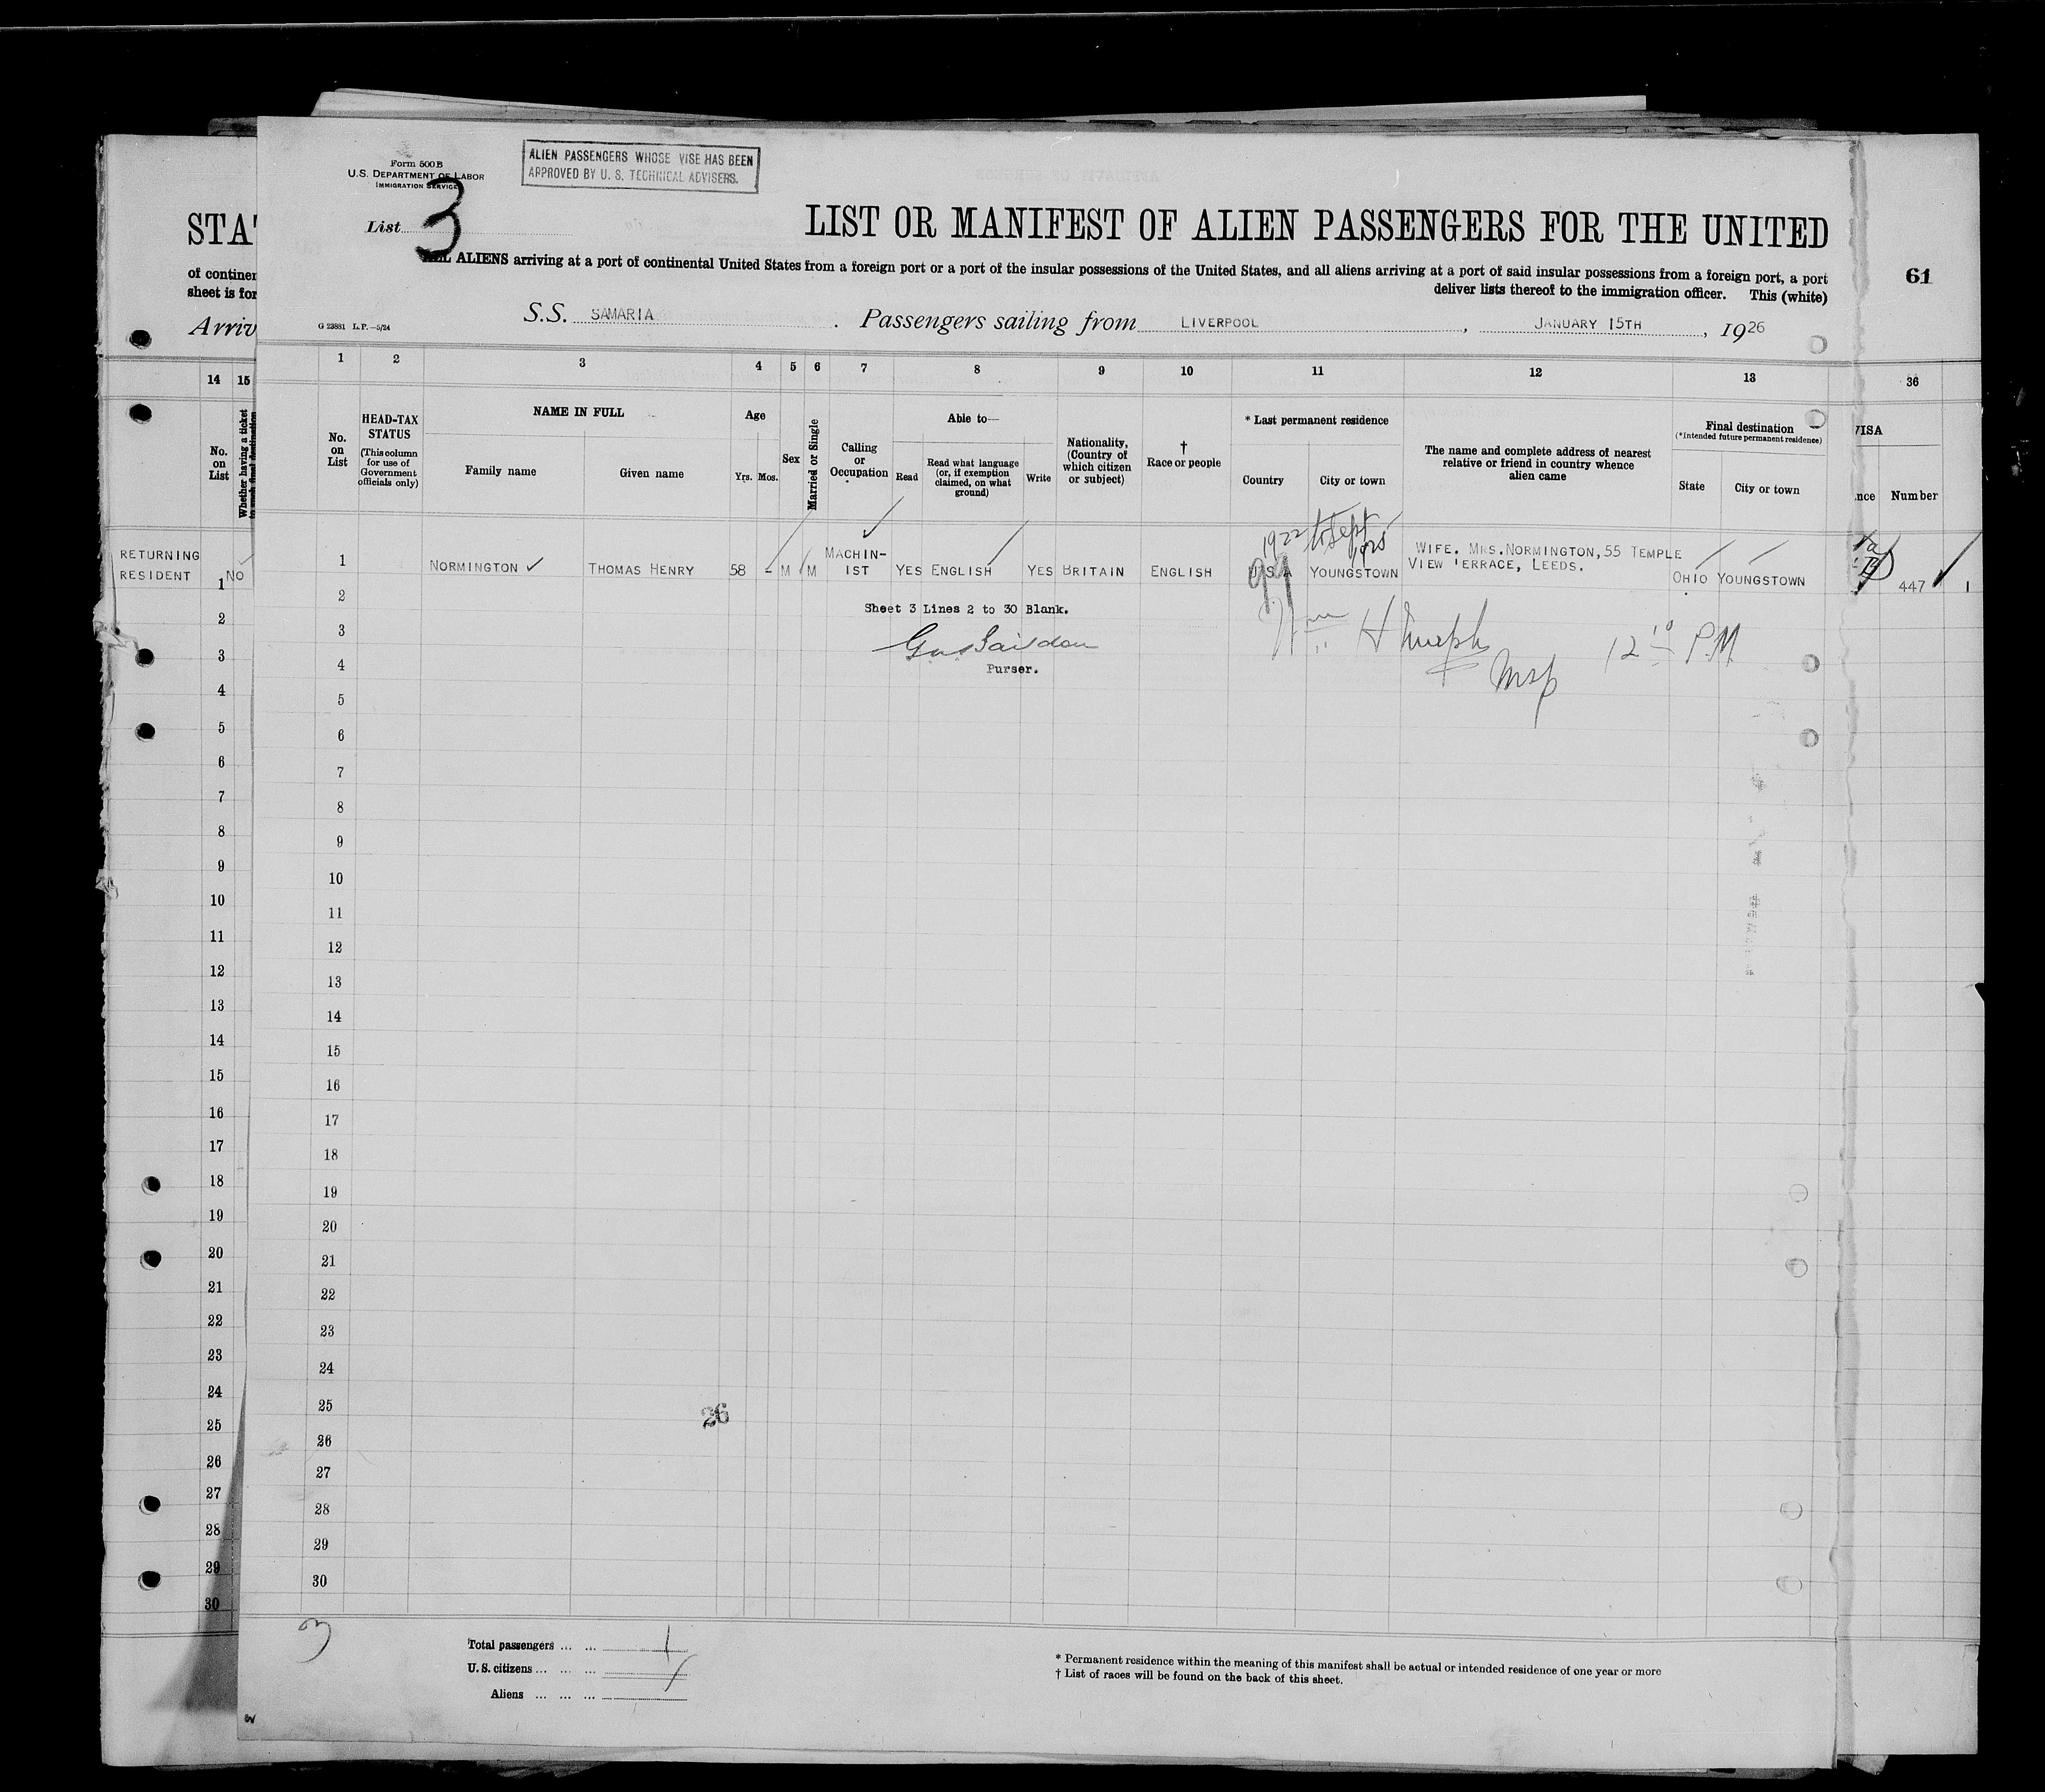 Form 500 B
U.S. DEPARTMENT OF LABOR
IMMIGRATION SERVICE
ALIEN PASSENGERS WHOSE VISE HAS BEEN
APPROVED BY U. S. TECHNICAL ADVISERS.
List 3
STAT
LIST OR MANIFEST OF ALIEN PASSENGERS FOR THE UNITED
ALL ALIENS arriving at a port of continental United States from a foreign port or a port of the insular possessions of the United States, and all aliens arriving at a port of said insular possessions from a foreign port, a port
deliver lists thereof to the immigration officer. This (white)
of continen
sheet is for
61
Arriv
G 23881 L.P.—5/24
S.S. SAMARIA . Passengers sailing from LIVERPOOL , JANUARY 15TH , 1926
14 15
1 2 3 4 5 6 7 8 9 10 11 12 13
36
No. on List
Whether having a ticket
No. on List
HEAD-TAX STATUS
(This column for use of Government officials only)
NAME IN FULL
Family name
Given name
Age
Yrs. Mos.
Sex
Married or Single
Calling or Occupation
Able to—
Read
Read what language (or, if exemption claimed, on what ground)
Write
Nationality, (Country of which citizen or subject)
† Race or people
* Last permanent residence
Country
City or town
The name and complete address of nearest relative or friend in country whence alien came
Final destination
(*Intended future permanent residence)
State
City or town
VISA
nce
Number
1922 to Sept 1925
RETURNING RESIDENT 1 NO
1 NORMINGTON THOMAS HENRY 58 - M M MACHIN-IST YES ENGLISH YES BRITAIN ENGLISH U.S.A YOUNGSTOWN WIFE. MRS.NORMINGTON, 55 TEMPLE VIEW TERRACE, LEEDS. OHIO YOUNGSTOWN 447 1
Sheet 3 Lines 2 to 30 Blank.
Purser.
12 10 P.M.
2
3
4
5
6
7
8
9
10
11
12
13
14
15
16
17
18
19
20
21
22
23
24
25
26
27
28
29
30
2
3
4
5
6
7
8
9
10
11
12
13
14
15
16
17
18
19
20
21
22
23
24
25
26
27
28
29
30
26
3
Total passengers ... ... 1
U. S. citizens ... ... ...
Aliens ... ... ...
* Permanent residence within the meaning of this manifest shall be actual or intended residence of one year or more
† List of races will be found on the back of this sheet.